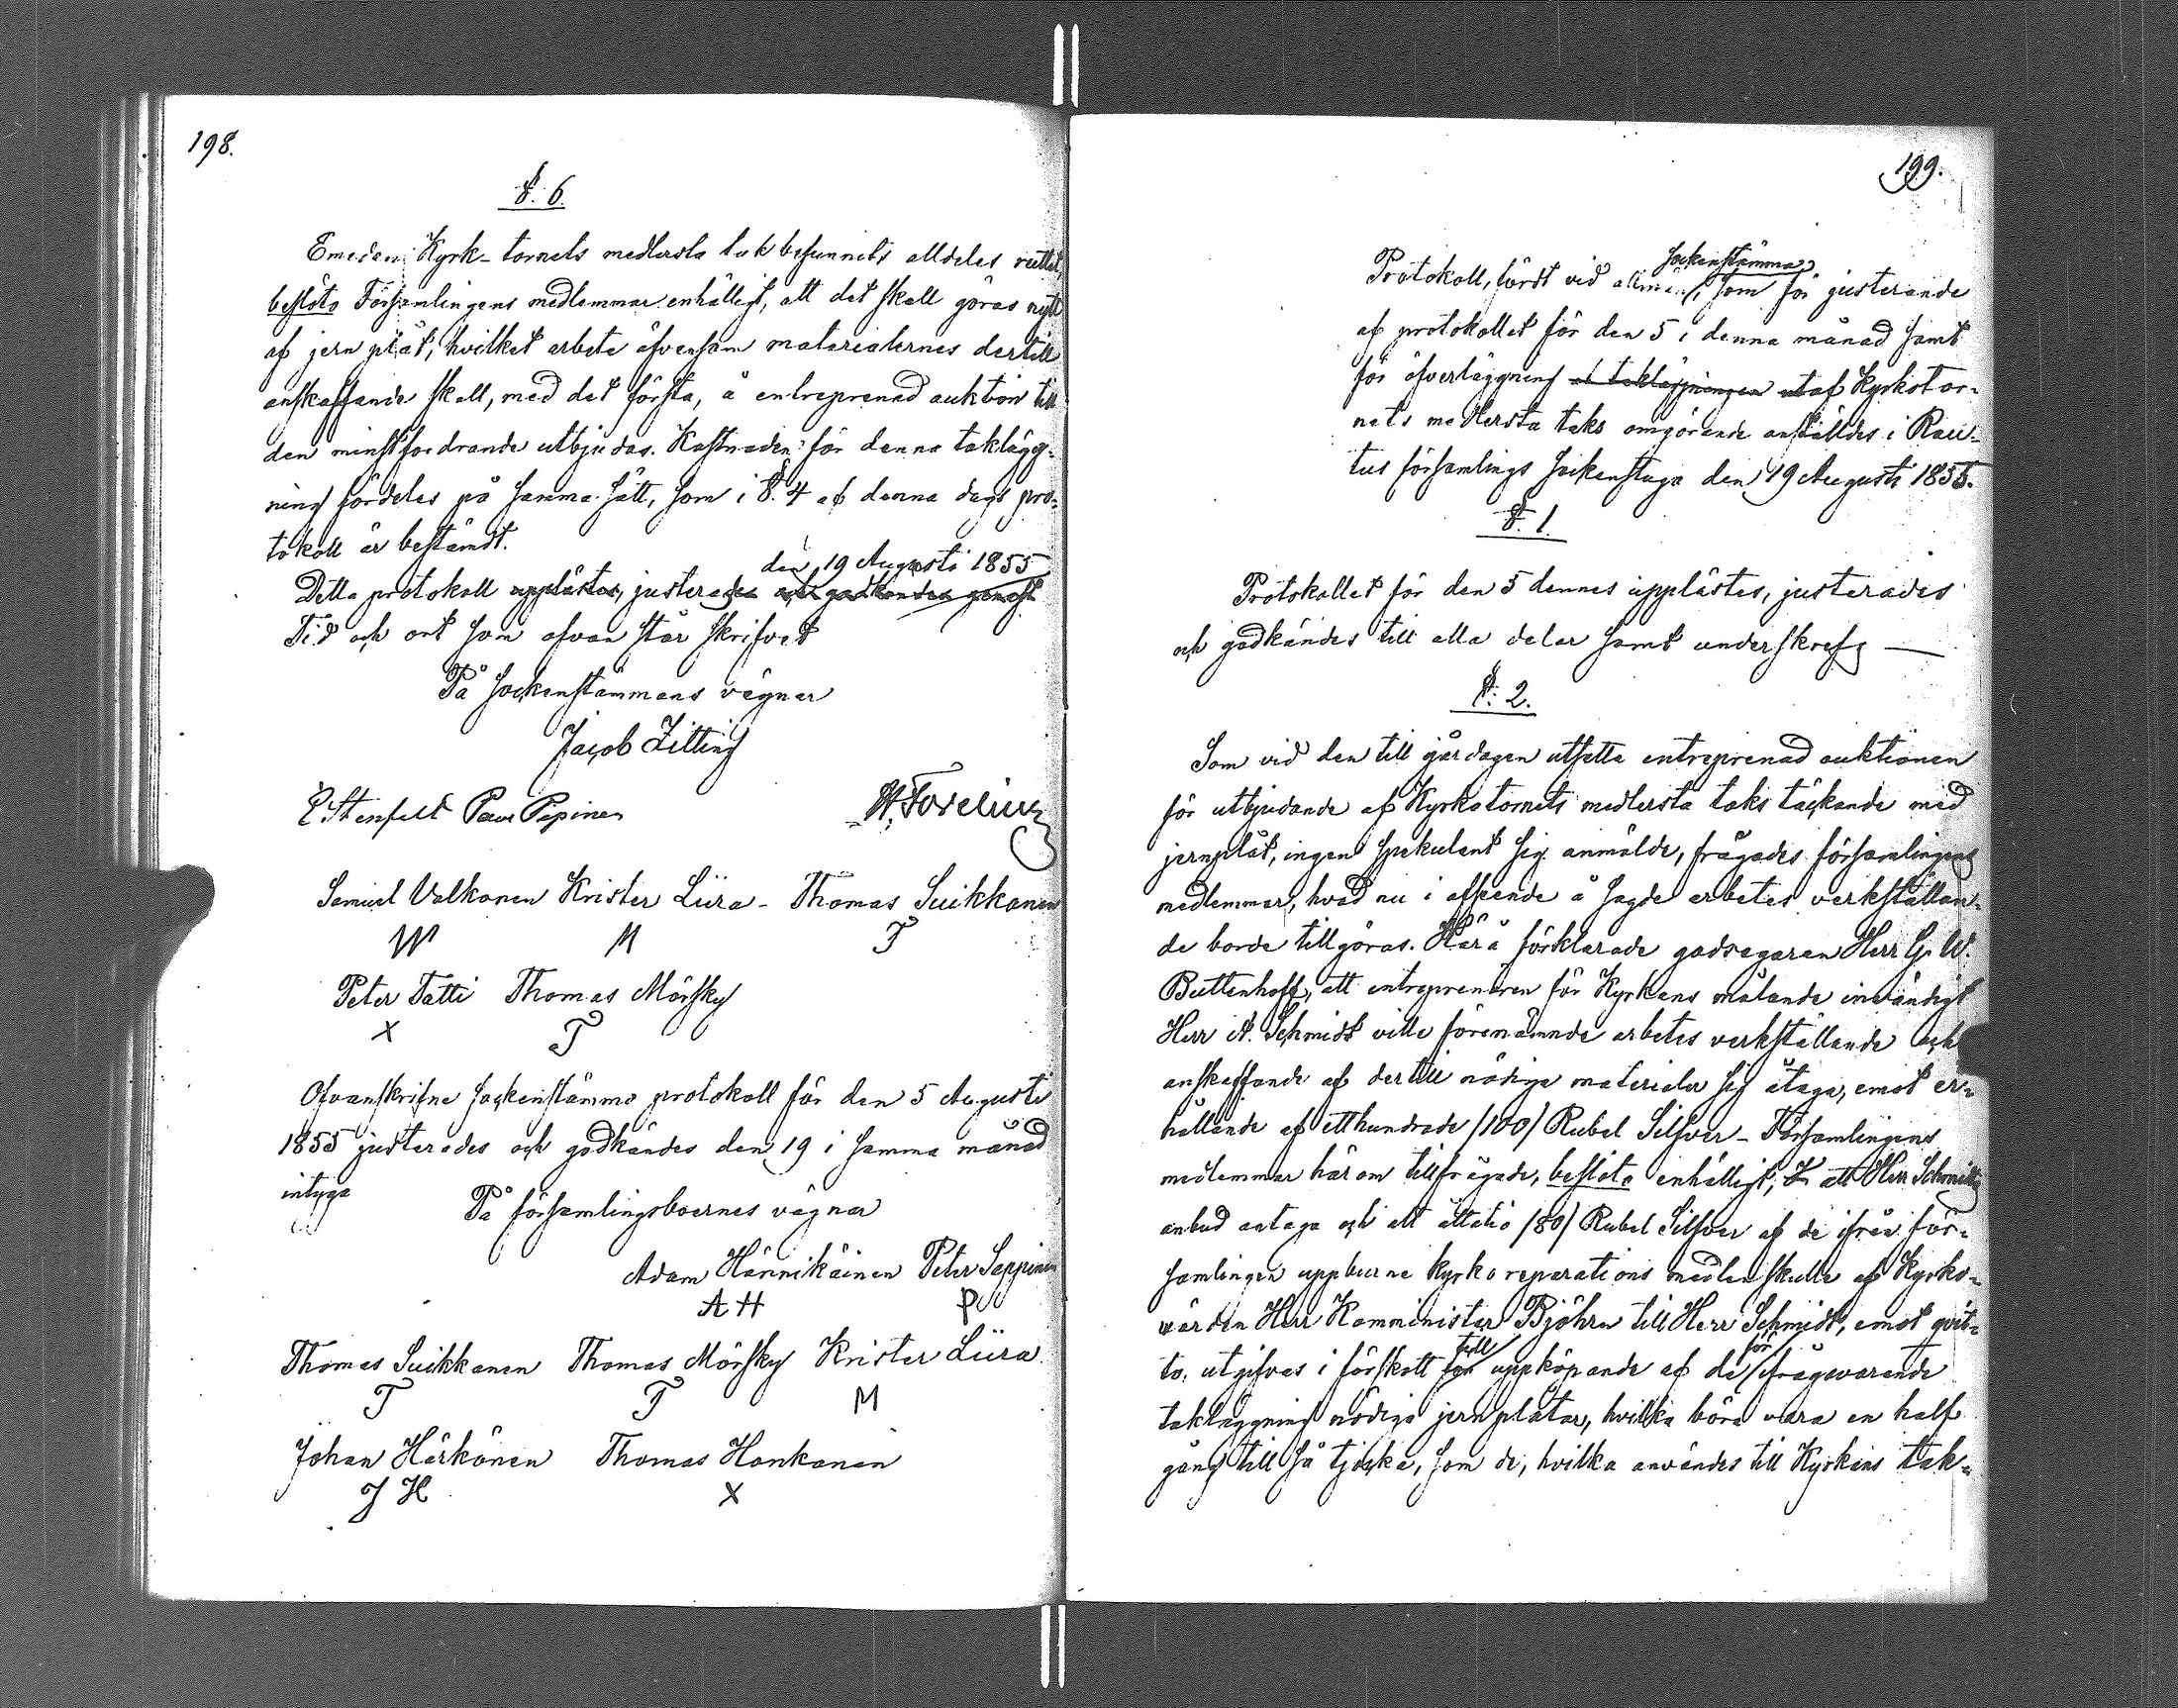 198.
§. 6.
Emedan Kyrk-tornets medlersta tak befunnits alldeles ruttet,
beslöto Församlingens medlemmar enhälligt, att det skall göras nytt
af jern plåt, hvilket arbete äfvensom materialernes dertill
anskaffande skall, med det första, å entreprenad auktion till
den minstfordrande utbjudas. Kostnaden för denna taklägg-
ning fördelas på samma sätt, som i §. 4 af denna dags pro-
tokoll är bestämdt.
den 19 Augusti 1855
Detta protokoll upplästes, justerades och godkändes genast
Tid och ort som ofvan står skrifvet
På Sockenstämmans vägnar
Jacob Zitting
E Stenfelt Paul Pipinen H. Forelius
Samuel Valkonen Krister Liira - Thomas Suikkanen
W M T
Peter Tatti Thomas Mörsky
X T
Ofvanskrifne Sockenstämmo protokoll för den 5 Augusti
1855 justerades och godkändes den 19 i samma månad
intyga
På församlingsboernes vägnar
Adam Hännikäinen Peter Seppinen
A H P
Thomas Suikkanen Thomas Mörsky Krister Liira
T T M
Johan Härkönen Thomas Honkanen
J H X
199.
Sockenstämma
Protokoll, fördt vid allmän, som för justerande
af protokollet för den 5 i denna månad samt
för öfverläggning af takläggningen utaf Kyrkotor-
nets medlersta taks omgörande anställdes i Rau-
tus församlings Sockenstuga den 19 Augusti 1855.
§. 1.
Protokollet för den 5 dennes upplästes, justerades
och godkändes till alla delar samt underskrefs —
§. 2.
Som vid den till gårdagen utsatta entreprenad auktionen
för utbjudande af Kyrkotornets medlersta taks täckande med
jernplåt, ingen spekulant sig anmälde, frågades församlingens
medlemmar, hvad nu i afseende å sagde arbetes verkställan-
de borde tillgöras. Härå förklarade godsegaren Herr G. W.
Buttenhoff, att entreprenören för Kyrkans målande invändigt
Herr A. Schmidt ville förenämnde arbetes verkställande och
anskaffande af dertill nödiga materialer sig åtaga, emot er-
hållande af etthundrade /100/ Rubel Silfver - Församlingens
medlemmar härom tillfrågade, beslöto enhälligt, att Herr Schmidts
anbud antaga och att åttatio /80/ Rubel Silfver af de ifrån för-
samlingen uppburne kyrko reparations medlen skulle af Kyrko-
värden Herr Komminister Björhn till Herr Schmidt, emot qvit-
till för
to, utgifvas i förskott för uppköpande af de ifrågavarande
takläggning nödiga jernplåtar, hvilka böra vara en half
gång till så tjocka, som de, hvilka användes till Kyrkans tak-